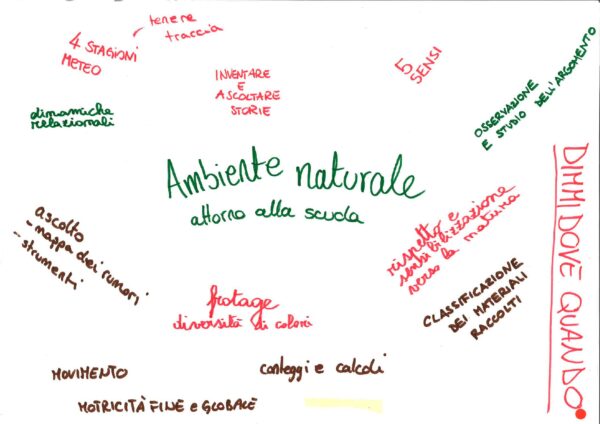 4 STAGIONI
METEO
tenere
traccia
INVENTARE
E
ASCOLTARE
STORIE
5
SENSI
OSSERVAZIONE
E STUDIO DELL'ARGOMENTO
dinamiche
relazionali
Ambiente naturale
attorno alla scuola
DIMMI DOVE QUANDO
ascolto
- mappa dei rumori
- strumenti
rispetto e
sensibilizzazione
verso la natura
frotage
diversità di colori
CLASSIFICAZIONE
DEI MATERIALI
RACCOLTI
MOVIMENTO
conteggi e calcoli
MOTRICITÀ FINE e GLOBALE